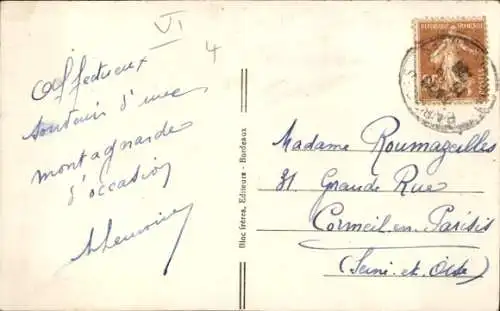 VI
4
Affectueux
souvenir d'une
montagnarde
d'occasion
Bloc frères, Editeurs - Bordeaux
REPUBLIQUE FRANCAISE
Madame Roumazeilles
31 Grande Rue
Cormeil en Parisis
(Seine et Oise)